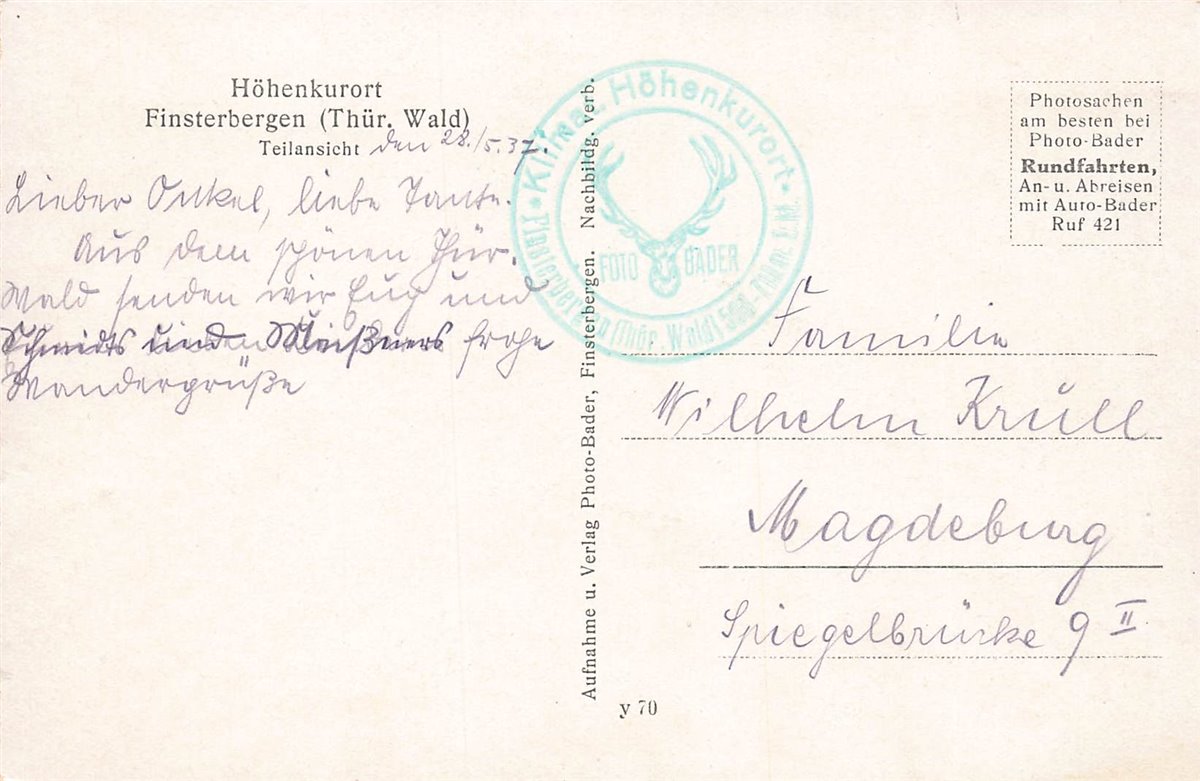 Höhenkurort
Finsterbergen (Thür. Wald)
Teilansicht den 28./5.37.
Lieber Onkel, liebe Tante.
Aus dem schönen Thür.
Wald senden wir Euch und
Schmidts und Meißners frohe
Wandergrüße
Klimat. Höhenkurort
Finsterbergen (Thür. Wald) 500-
FOTO BADER
Aufnahme u. Verlag Photo-Bader, Finsterbergen. Nachbildg. verb.
y 70
Photosachen
am besten bei
Photo-Bader
Rundfahrten,
An- u. Abreisen
mit Auto-Bader
Ruf 421
Familie
Wilhelm Krüll
Magdeburg
Spiegelbrücke 9 II